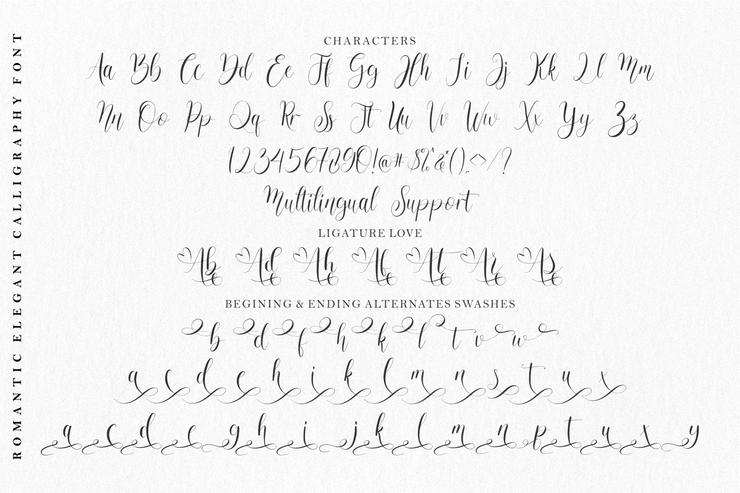 ROMANTIC ELEGANT CALLIGRAPHY FONT
CHARACTERS
Aa Bb Cc Dd Ee Ff Gg Hh Ii Jj Kk Ll Mm
Nn Oo Pp Qq Rr Ss Tt Uu Vv Ww Xx Yy Zz
1234567890!@#$%&().,<>/?
Multilingual Support
LIGATURE LOVE
Ab Ad Ah Af At Ar As
BEGINING & ENDING ALTERNATES SWASHES
b d f h k l t v w
a c d e h i k l m n s t u x
a c d e g h i j k l m n p t u x y